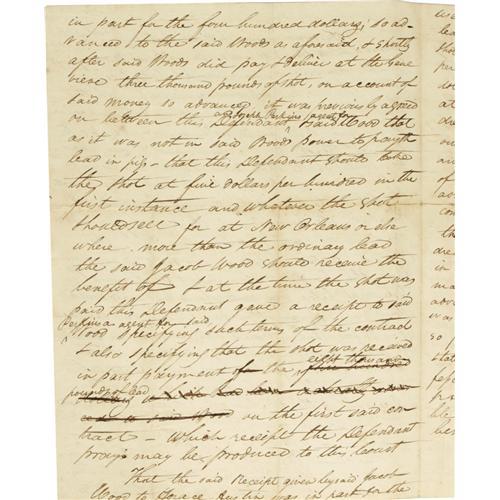 in part for the four hundred dollars, so ad-
vanced to the said Woods as aforesaid, & shortly
after said Woods did pay & deliver at the Gene
vieve three thousand pounds of shot, on account of
said money so advanced, it was previously agreed
on between this Defendant & Joseph Perkins agent for said Wood that
as it was not in said Woods power to pay the
lead in pigs - that this Defendant should take
the shot at five dollars per hundred in the
first instance and whatever the shot
should sell for at New Orleans or else
where more than the ordinary lead
the said Jacob Wood should receive the
benefit of & at the time the shot was
paid this Defendant gave a receipt to said
Perkins a agent for said
Wood specifying such terms of the contract
& also specifying that the shot was received
in part payment of the eight thousand
pounds of lead
on the first said con
tract - which receipt the Defendant
prays may be produced to this Court
That the said Receipt given by said Jacob
Wood to Horace Austin was in part for the